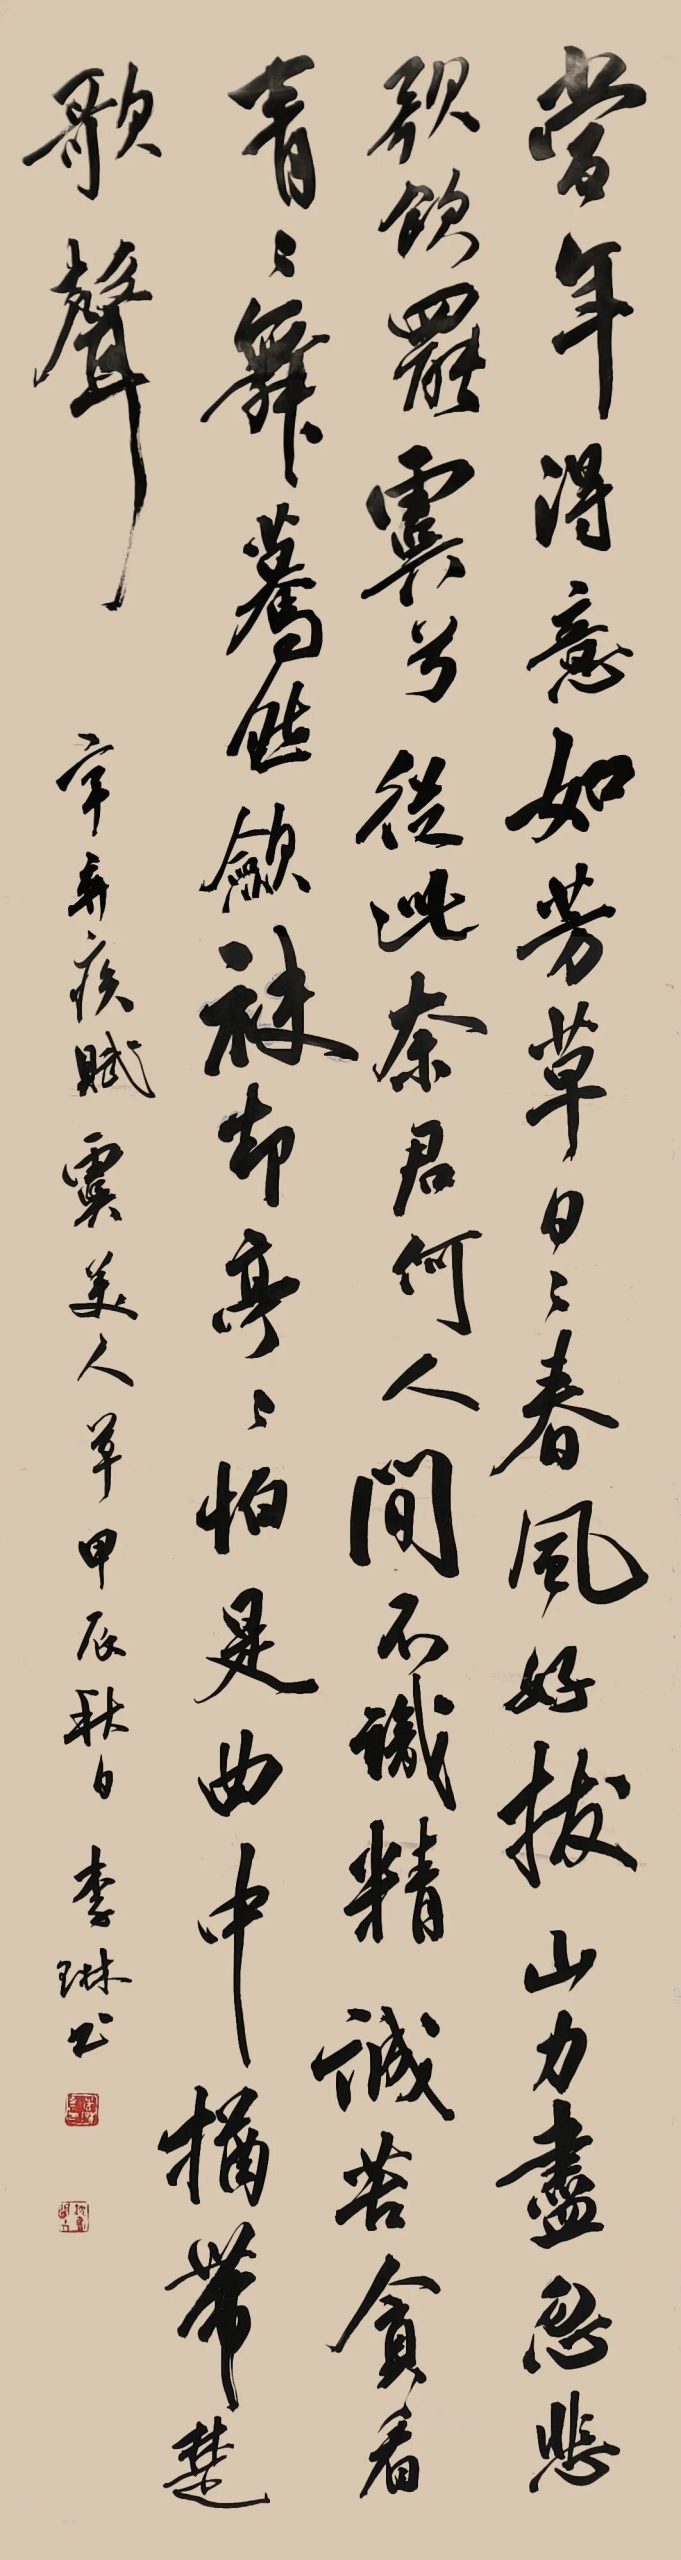 當年得意如芳草日〻春風好拔山力盡忽悲
歌飲罷虞兮從此奈君何人間不識精誠苦貪看
青〻舞驀然斂袂却亭〻怕是曲中猶帶楚
歌聲
辛弃疾賦虞美人草甲辰秋日李琳书